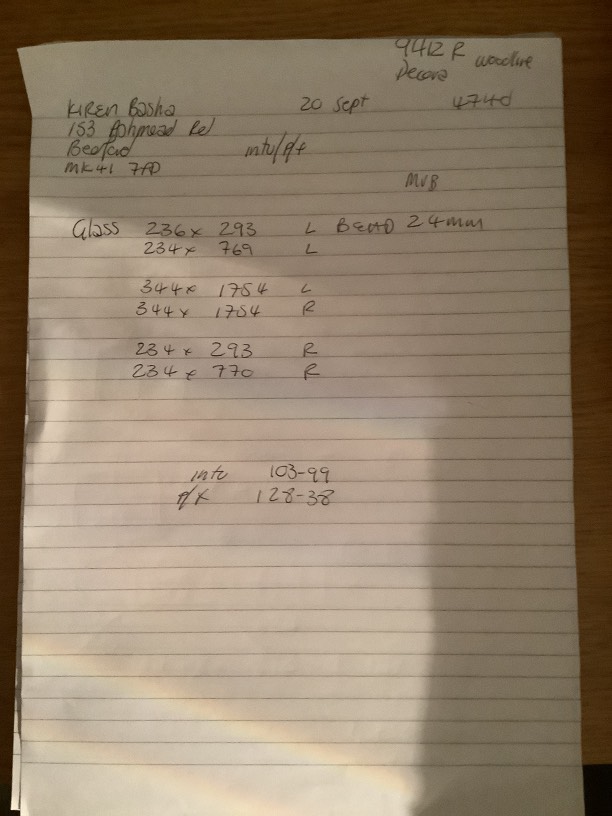 9412 R woodlue
Decora
KIREN Basha 20 Sept 474d
153 Rd
Bedford intu/p/f
MK41 7
MVB
Glass 236 x 293 L BEAD 24mm
234 x 769 L
344 x 1754 L
344 x 1754 R
234 x 293 R
234 x 770 R
intu 103-99
p/x 128-38